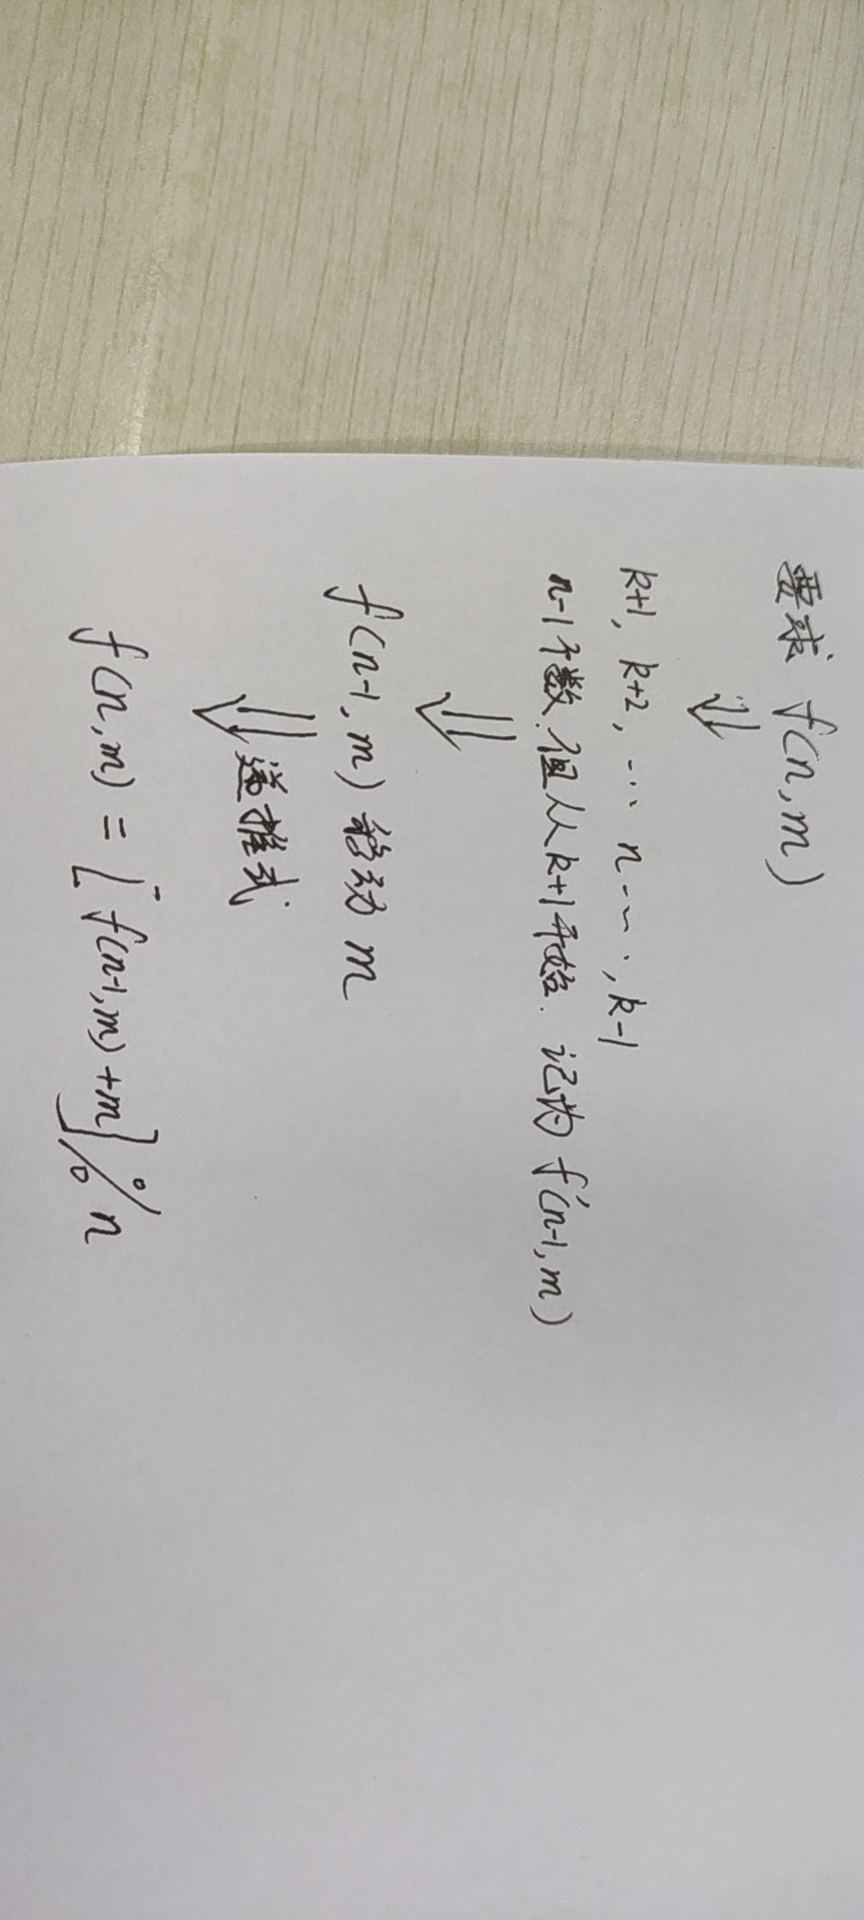 要求 f(n,m)
⇓
k+1, k+2, ... n ..., k-1
n-1个数,但从k+1开始. 记为 f'(n-1,m)
⇓
f(n-1,m) 移动 m
⇓ 递推式
f(n,m) = [f(n-1,m)+m]%n